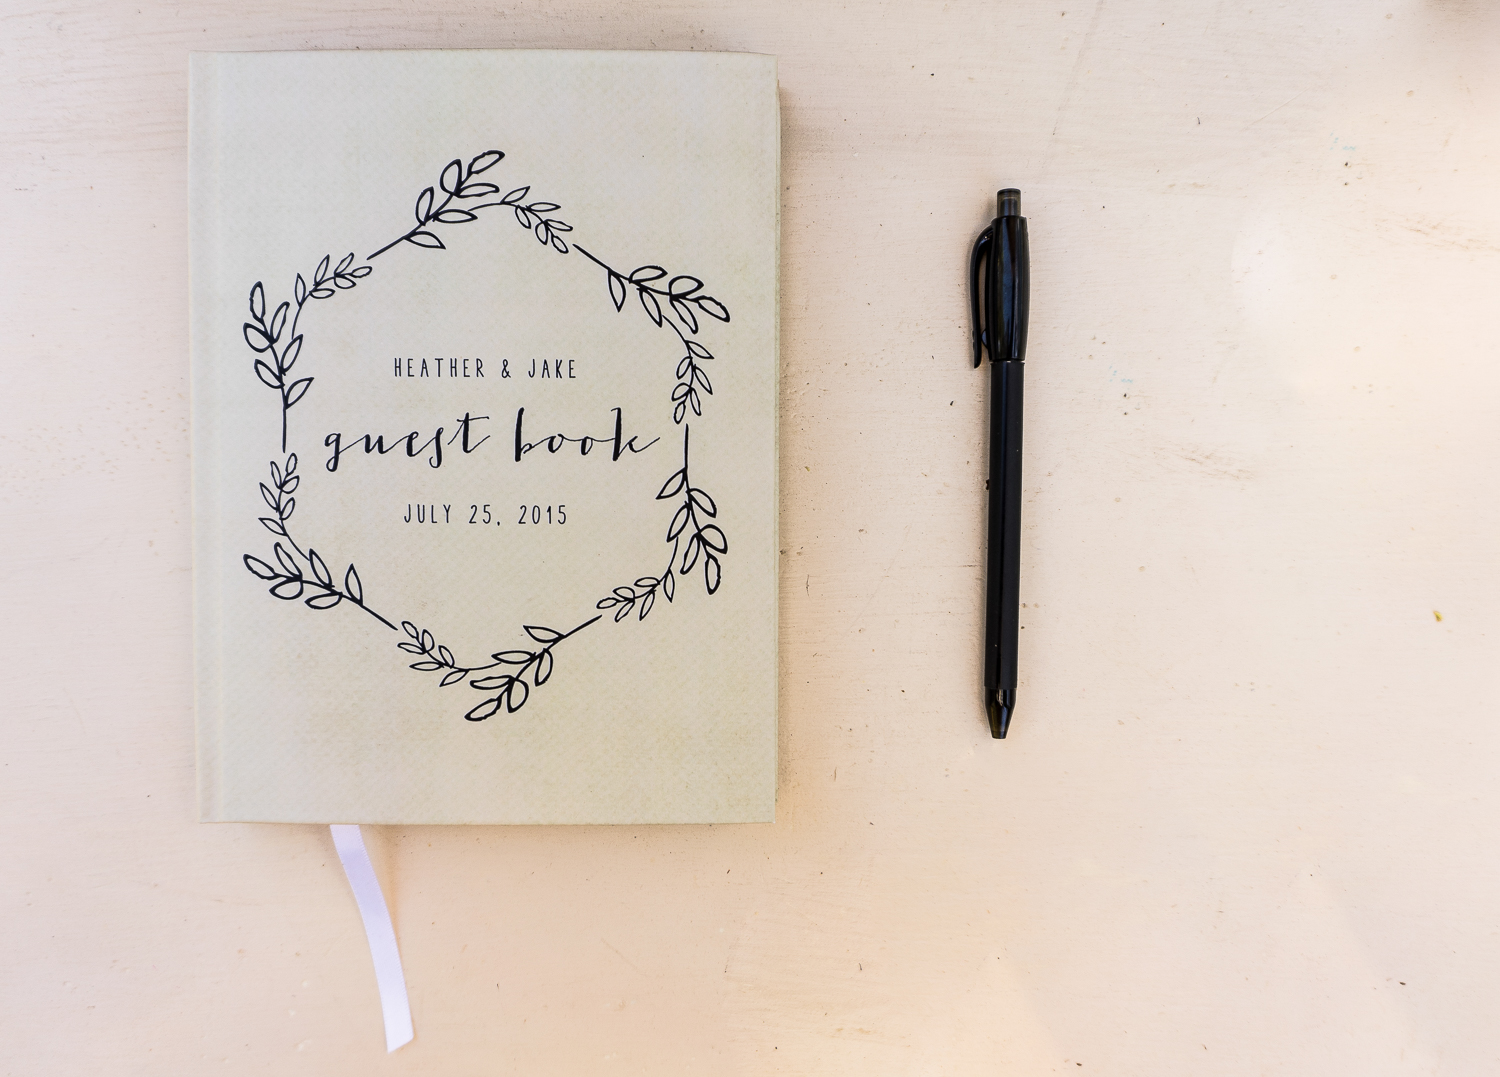 HEATHER & JAKE
guest book
JULY 25, 2015